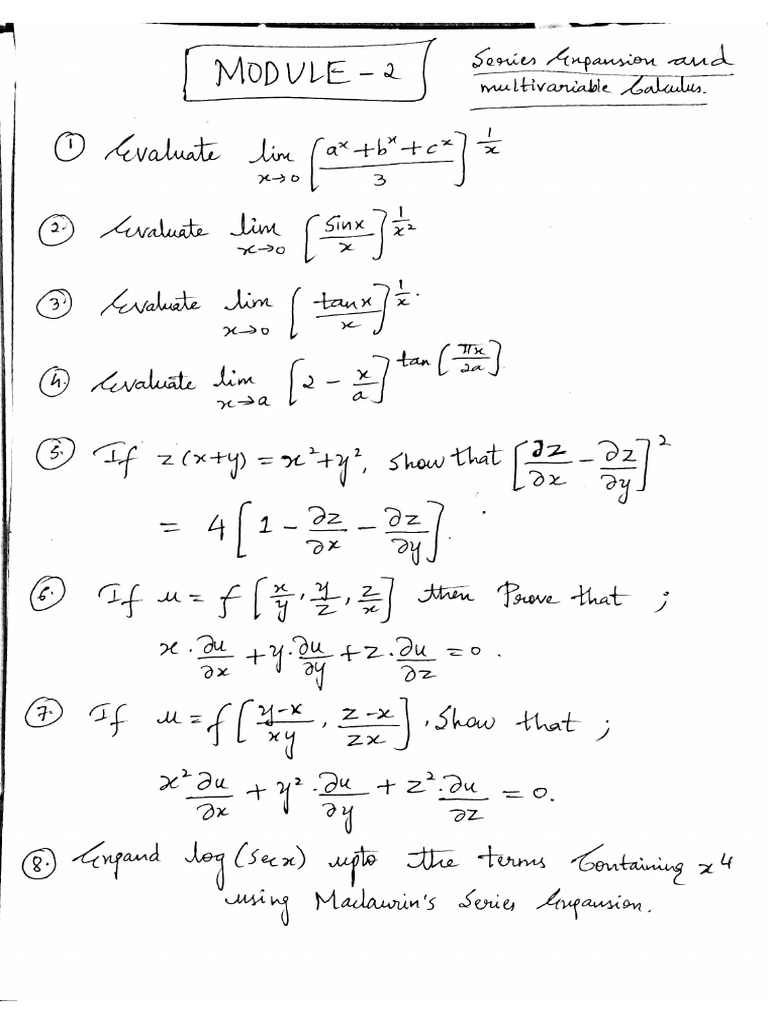 MODULE - 2
Series Expansion and
multivariable Calculus.
① Evaluate lim x→0 [(aˣ + bˣ + cˣ)/3]^(1/x)
②. Evaluate lim x→0 [sinx/x]^(1/x²)
③. Evaluate lim x→0 [tanx/x]^(1/x).
④. Evaluate lim x→a [2 - x/a]^tan(πx/2a)
⑤. If z(x+y) = x²+y², show that [∂z/∂x - ∂z/∂y]²
= 4[1 - ∂z/∂x - ∂z/∂y].
⑥. If u = f[x/y, y/z, z/x] then Prove that ;
x.∂u/∂x + y.∂u/∂y + z.∂u/∂z = 0.
⑦. If u = f[(y-x)/xy, (z-x)/zx]. Show that ;
x²∂u/∂x + y².∂u/∂y + z².∂u/∂z = 0.
⑧. Expand log(secx) upto the terms Containing x⁴
using Maclaurin's Series Expansion.